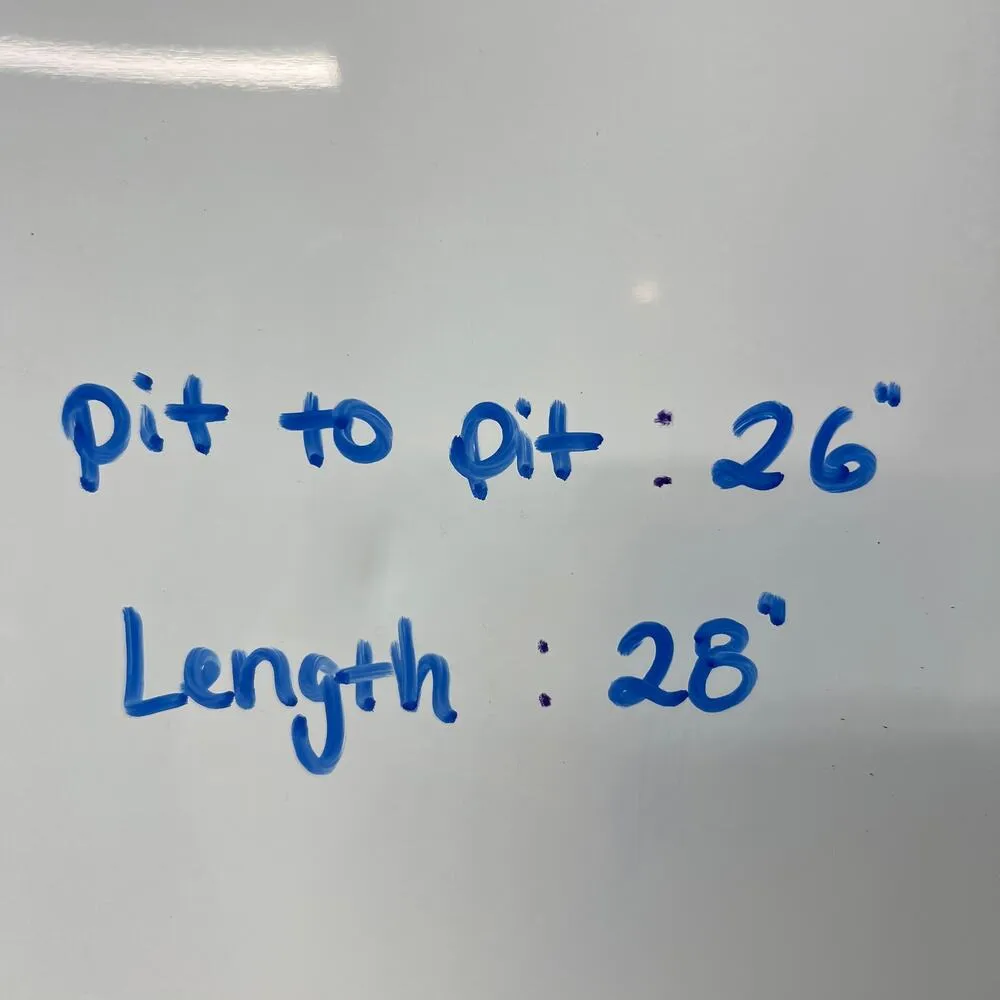 pit to pit : 26"
Length : 28"